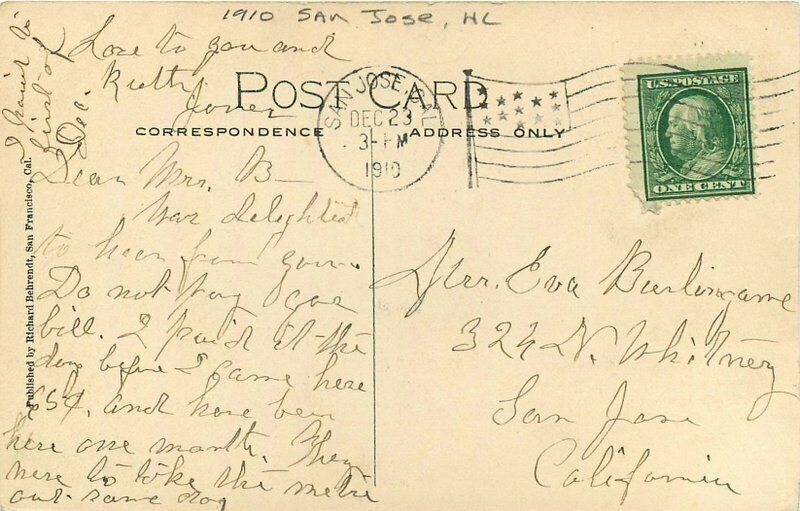 1910 SAN JOSE, HL
Love to you and
Ruth
POST CARD
SAN JOSE, CAL.
DEC 23
3-PM
1910
U.S. POSTAGE
ONE CENT
CORRESPONDENCE
ADDRESS ONLY
I paid it
first of
Dec.
Published by Richard Behrendt, San Francisco, Cal.
Dear Mrs. B—
Was delighted
to hear from you.
Do not pay gas
bill. I paid it the
day before I came here
85¢. and have been
here one month. They
were to take the metre
out same day
Mrs. Eva Burlingame
324 N. Whitney
San Jose
California